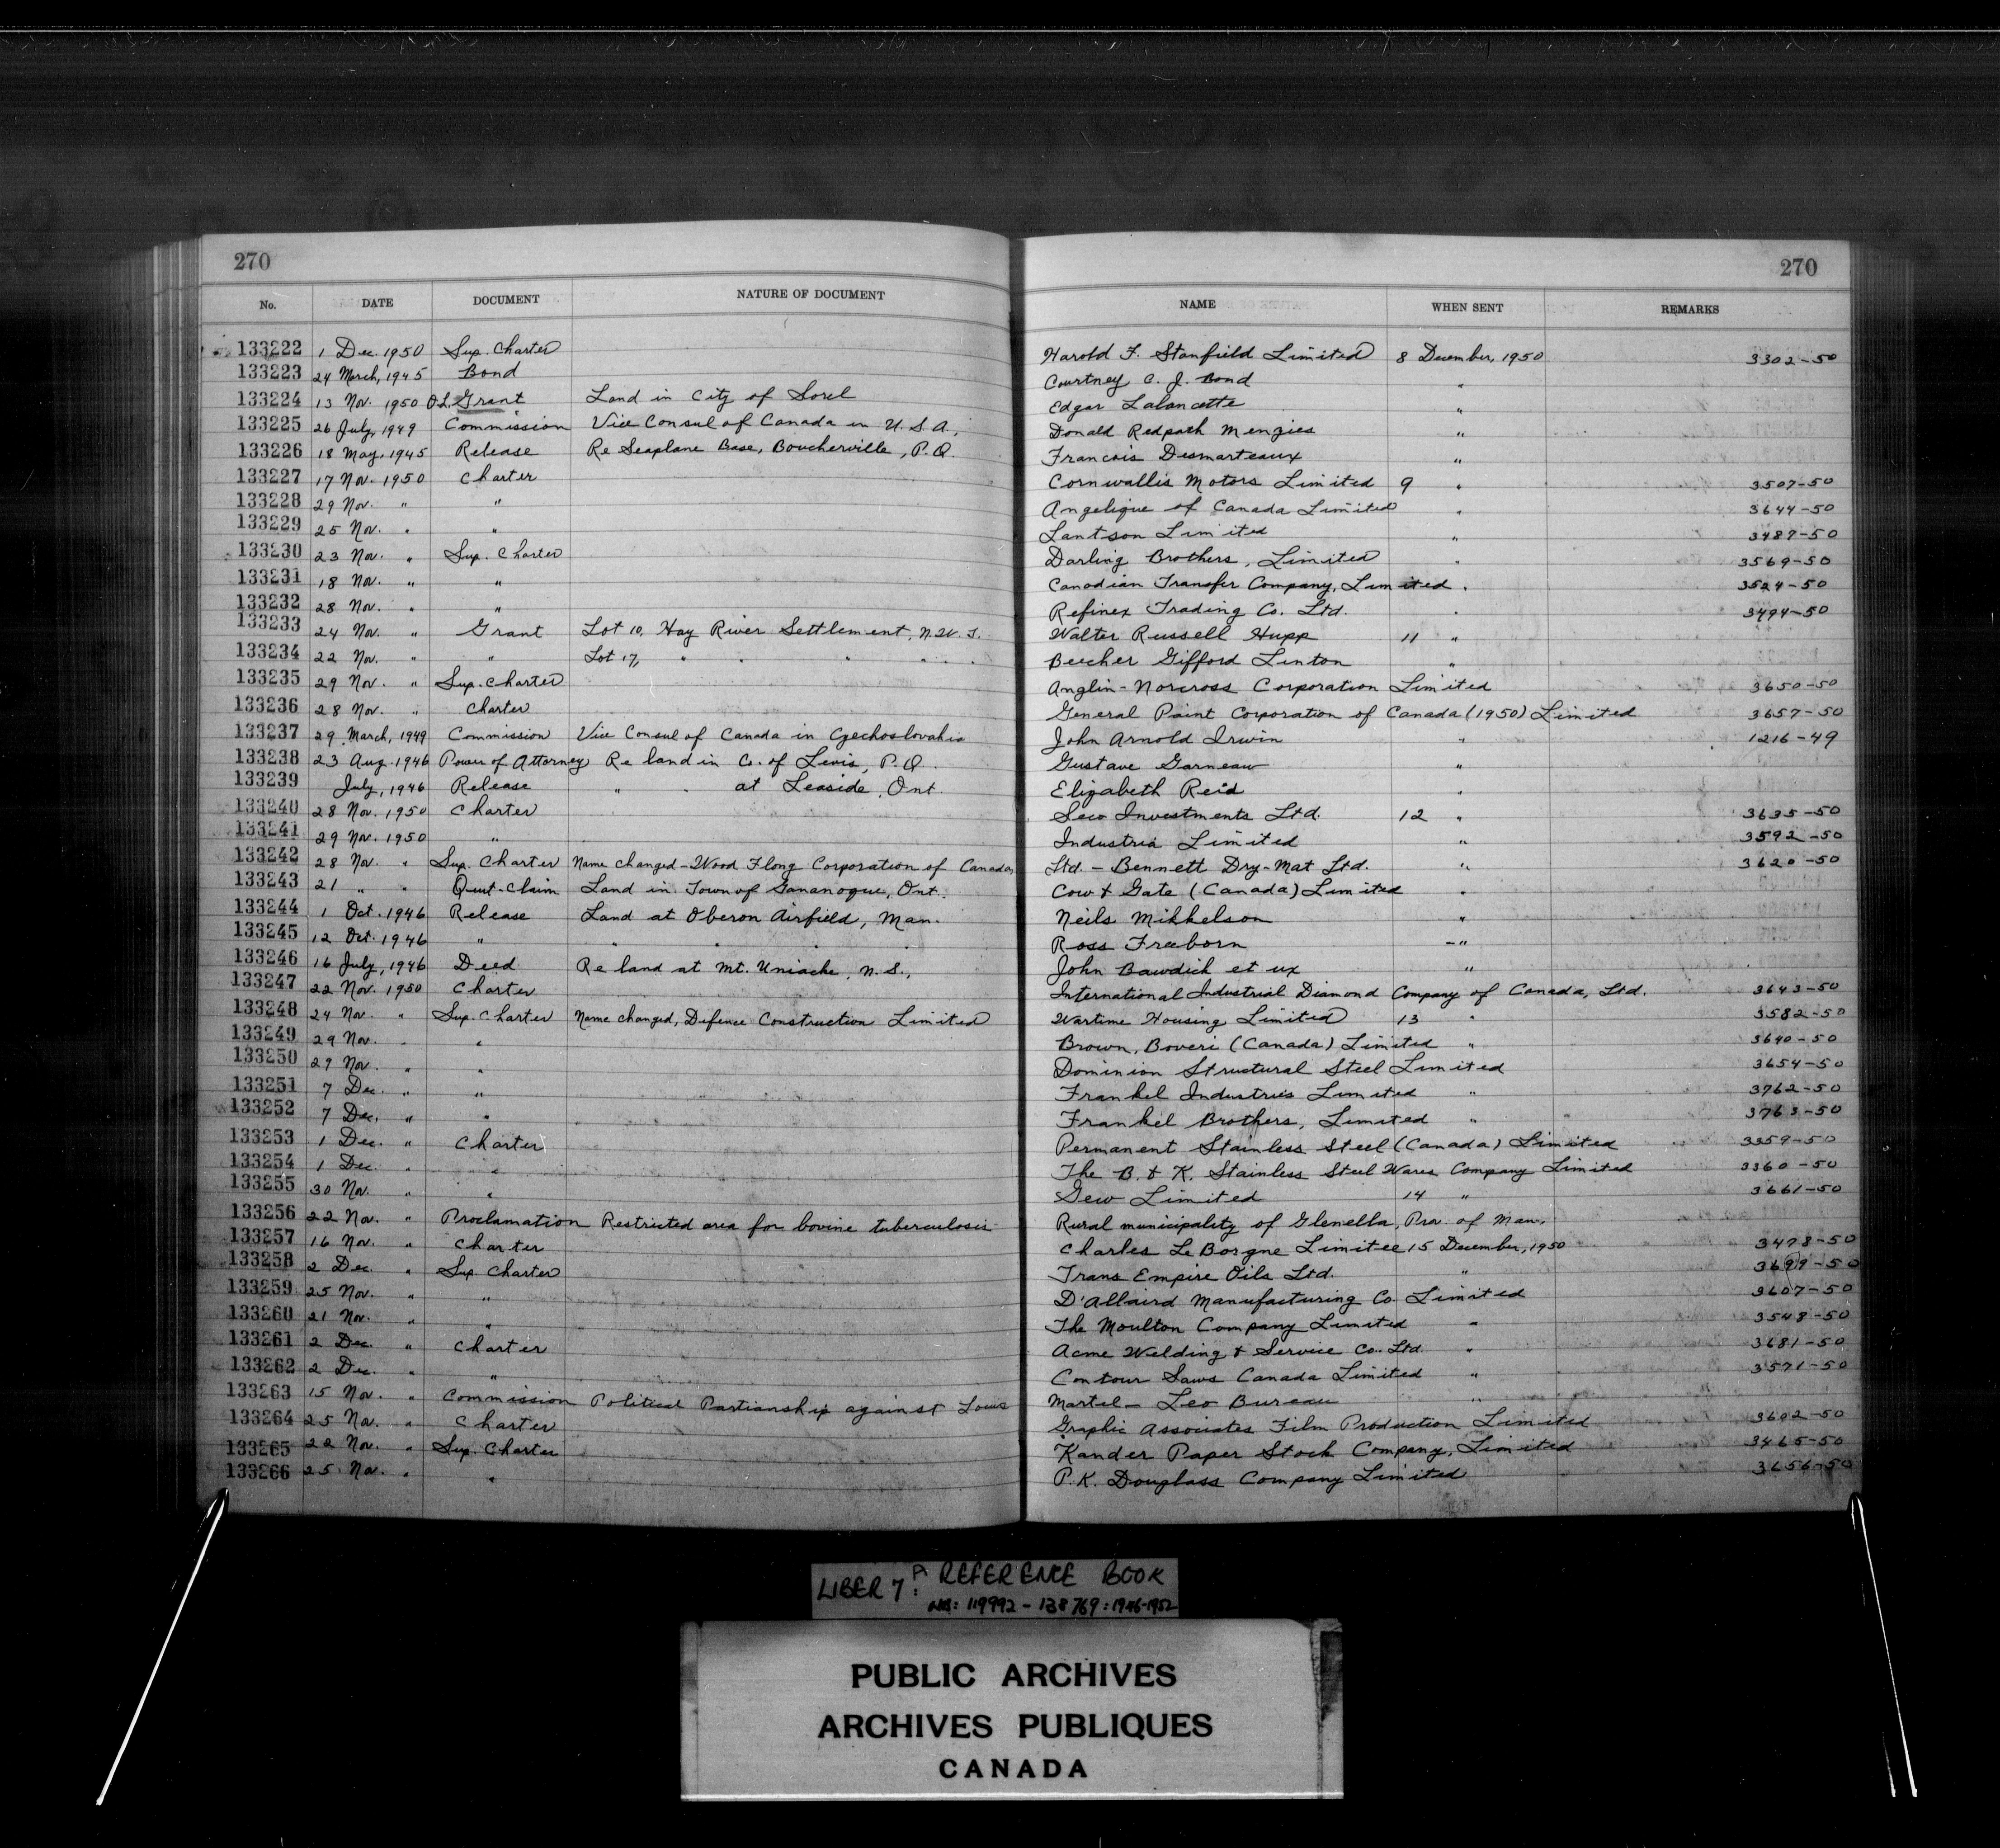 270 270
No. DATE DOCUMENT NATURE OF DOCUMENT NAME WHEN SENT REMARKS
133222 1 Dec. 1950 Sup. Charter Harold F. Stanfield Limited 8 December, 1950 3302-50
133223 24 March, 1945 Bond Courtney C. J. Bond "
133224 13 Nov. 1950 O.L. Grant Land in City of Sorel Edgar Lalancette "
133225 26 July, 1949 Commission Vice Consul of Canada in U.S.A. Donald Redpath Menzies "
133226 18 May, 1945 Release Re Seaplane Base, Boucherville, P.Q. Francois Desmarteaux "
133227 17 Nov. 1950 Charter Cornwallis Motors Limited 9 " 3507-50
133228 29 Nov. " " Angelique of Canada Limited " 3644-50
133229 25 Nov. " " Lantson Limited " 3487-50
133230 23 Nov. " Sup. Charter Darling Brothers, Limited " 3569-50
133231 18 Nov. " " Canadian Transfer Company, Limited " 3524-50
133232 28 Nov. " " Refinex Trading Co. Ltd. " 3494-50
133233 24 Nov. " Grant Lot 10, Hay River Settlement, N.W.T. Walter Russell Hupp 11 "
133234 22 Nov. " " Lot 17, " " " " " Beecher Gifford Linton "
133235 29 Nov. " Sup. Charter Anglin-Norcross Corporation Limited 3650-50
133236 28 Nov. " Charter General Paint Corporation of Canada (1950) Limited 3657-50
133237 29 March, 1949 Commission Vice Consul of Canada in Czechoslovakia John Arnold Irwin " 1216-49
133238 23 Aug. 1946 Power of Attorney Re land in Co. of Levis, P.Q. Gustave Garneau "
133239 July, 1946 Release " " at Leaside, Ont. Elizabeth Reid "
133240 28 Nov. 1950 Charter Seco Investments Ltd. 12 " 3635-50
133241 29 Nov. 1950 " Industria Limited " 3592-50
133242 28 Nov. " Sup. Charter Name changed - Wood Flong Corporation of Canada, Ltd. - Bennett Dry-Mat Ltd. " 3620-50
133243 21 " " Quit-Claim Land in Town of Gananoque, Ont. Cow & Gate (Canada) Limited "
133244 1 Oct. 1946 Release Land at Oberon Airfield, Man. Neils Mikkelson "
133245 12 Oct. 1946 " " " " " Ross Freeborn - "
133246 16 July, 1946 Deed Re land at Mt. Uniacke, N.S., John Bawdick et ux "
133247 22 Nov. 1950 Charter International Industrial Diamond Company of Canada, Ltd. 3643-50
133248 24 Nov. " Sup. Charter Name changed, Defence Construction Limited Wartime Housing Limited 13 " 3582-50
133249 29 Nov. " " Brown, Boveri (Canada) Limited " 3640-50
133250 29 Nov. " " Dominion Structural Steel Limited 3654-50
133251 7 Dec. " " Frankel Industries Limited " 3762-50
133252 7 Dec. " " Frankel Brothers, Limited " 3763-50
133253 1 Dec. " Charter Permanent Stainless Steel (Canada) Limited 3359-50
133254 1 Dec. " " The B. & K. Stainless Steel Wares Company Limited 3360-50
133255 30 Nov. " " Gew Limited 14 " 3661-50
133256 22 Nov. " Proclamation Restricted area for bovine tuberculosis Rural municipality of Glenella, Prov. of Man.
133257 16 Nov. " Charter Charles Le Borgne Limitee 15 December, 1950 3478-50
133258 2 Dec. " Sup. Charter Trans Empire Oils Ltd. " 3699-50
133259 25 Nov. " " D'Allaird Manufacturing Co. Limited 3607-50
133260 21 Nov. " " The Moulton Company Limited " 3548-50
133261 2 Dec. " Charter Acme Welding & Service Co. Ltd. " 3681-50
133262 2 Dec. " " Contour Saws Canada Limited " 3571-50
133263 15 Nov. " Commission Political Partianship against Louis Martel - Leo Bureau "
133264 25 Nov. " Charter Graphic Associates Film Production Limited 3602-50
133265 22 Nov. " Sup. Charter Kander Paper Stock Company, Limited 3465-50
133266 25 Nov. " " P.K. Douglass Company Limited 3656-50
LIBER 7: A REFERENCE BOOK
NOS: 119992 - 138769: 1946-1952
PUBLIC ARCHIVES
ARCHIVES PUBLIQUES
CANADA